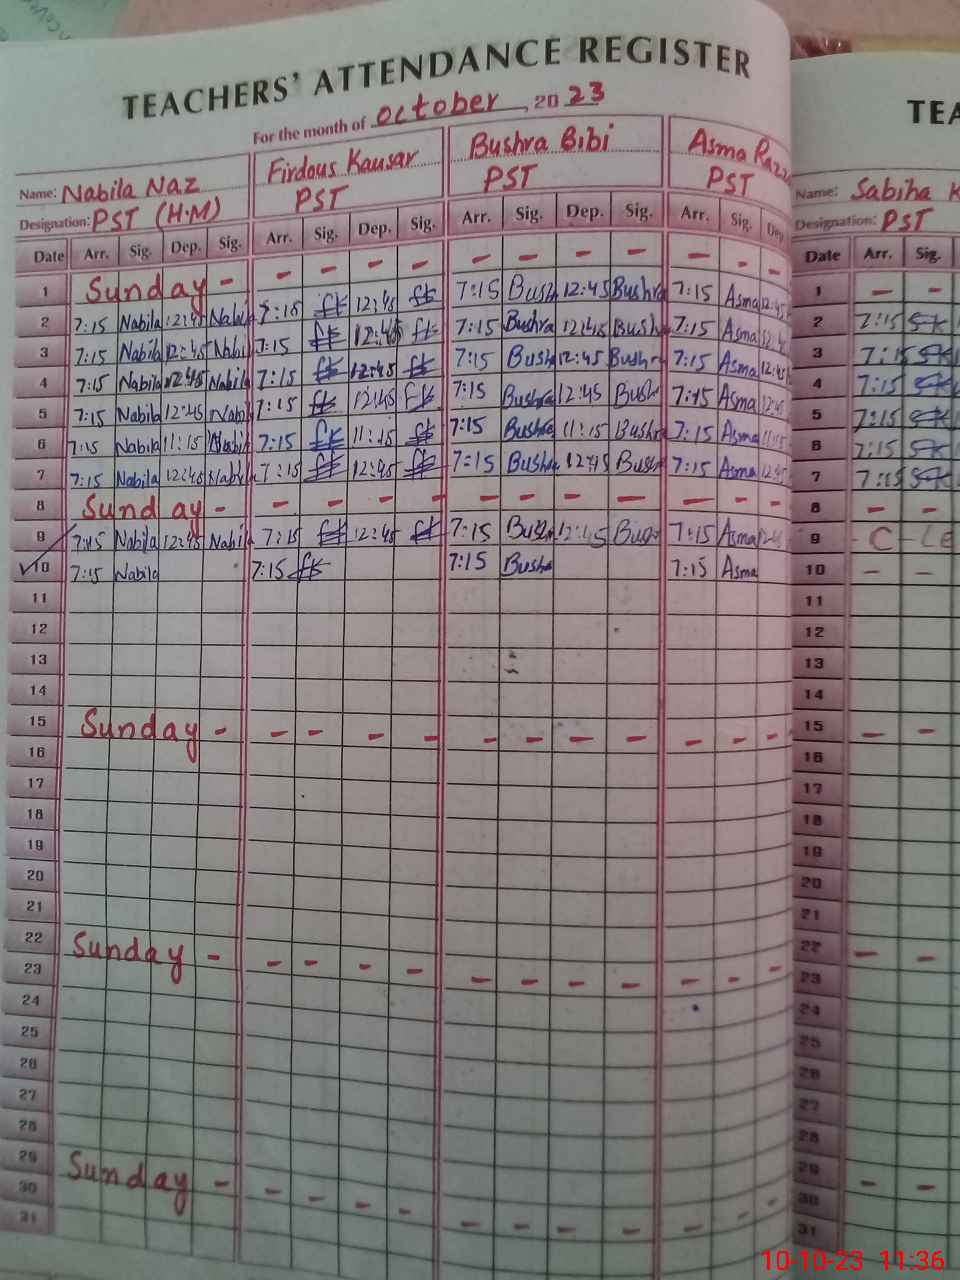 TEACHERS' ATTENDANCE REGISTER
For the month of October, 20 23
Name: Nabila Naz Firdous Kausar Bushra Bibi Asma
Designation: PST (H.M) PST PST PST
Date Arr. Sig. Dep. Sig. Arr. Sig. Dep. Sig. Arr. Sig. Dep. Sig. Arr. Sig. Dep
1 Sunday - - - - - - - - - - - -
2 7:15 Nabila 12:45 Nabila 7:15 fk 12:45 fk 7:15 Bush 12:45 Bushra 7:15 Asma 12:45
3 7:15 Nabila 12:45 Nabi 7:15 fk 12:45 fk 7:15 Bushra 12:45 Bush 7:15 Asma 12:45
4 7:15 Nabila 12:45 Nabila 7:15 fk 12:45 fk 7:15 Bush 12:45 Bushr 7:15 Asma 12:45
5 7:15 Nabila 12:45 Nabi 7:15 fk 12:45 fk 7:15 Bushra 12:45 Bush 7:15 Asma 12:45
6 7:15 Nabila 11:15 Nabila 7:15 fk 11:15 fk 7:15 Bushra 11:15 Bushra 7:15 Asma 11:15
7 7:15 Nabila 12:45 Nabi 7:15 fk 12:45 fk 7:15 Bushra 12:45 Bush 7:15 Asma 12:45
8 Sunday - - - - - - - - - - - -
9 7:15 Nabila 12:45 Nabil 7:15 fk 12:45 fk 7:15 Bush 12:45 Bush 7:15 Asma
10 7:15 Nabila 7:15 fk 7:15 Bushra 7:15 Asma
11
12
13
14
15 Sunday - - - - - - - - - - - -
16
17
18
19
20
21
22 Sunday - - - - - - - - - - - -
23
24
25
26
27
28
29 Sunday - - - - - - - - - - - -
30
31
TEA
Name: Sabiha K
Designation: PST
Date Arr. Sig.
1 - -
2 7:15 SK
3 7:15 SK
4 7:15 SK
5 7:15 SK
6 7:15 SK
7 7:15 SK
8 - -
9 C - Le
10 - -
11
12
13
14
15 - -
16
17
18
19
20
21
22 - -
23
24
25
26
27
28
29 - -
30
31
10-10-23 11:36